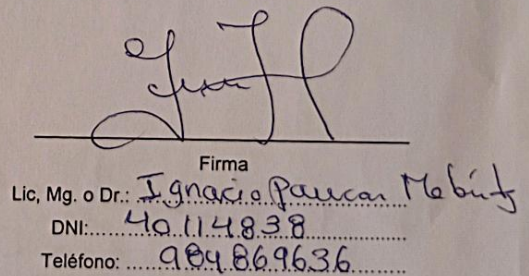 Firma
Lic, Mg. o Dr.: Ignacio Paucar
DNI: 40114838
Teléfono: 984869636